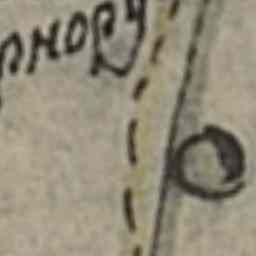 рнору